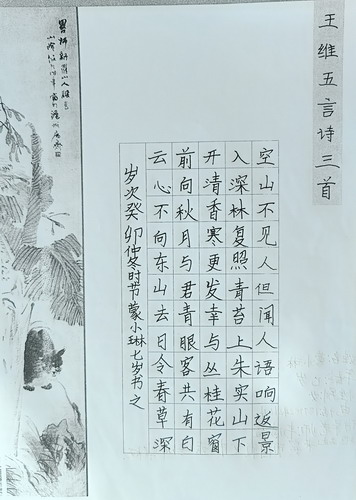 王维五言诗三首
空山不见人但闻人语响返景
入深林复照青苔上朱实山下
开清香寒更发幸与丛桂花窗
前向秋月与君青眼客共有白
云心不向东山去日令春草深
岁次癸卯仲冬时节蒙小琳七岁书之